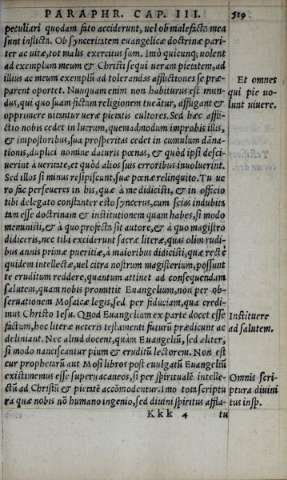 PARAPHR. CAP. III.
519
peculiari quodam fato acciderunt, uel ob malefacta mea
sunt inflicta. Ob synceritatem euangelicæ doctrinæ pari
ter ac uitæ, tot malis exercitus sum. Imò quicunq; uolent
ad exemplum meum & Christi sequi ueram pietatem, ad
illius ac meum exemplū ad tolerandas afflictiones se præ-
parent oportet. Nunquam enim non habiturus est mun-
dus, qui quo suam fictam religionem tueātur, affligant &
opprimere nitantur ueræ pietatis cultores. Sed hæc affli-
ctio nobis cedet in lucrum, quemadmodum improbis illis,
& impostoribus, sua prosperitas cedet in cumulum dāna-
tionis, duplici nomine daturis pœnas, & quòd ipsi desci-
uerint à ueritate, et quòd alios suis erroribus inuoluerint.
Sed illos si minus resipiscunt, suæ pœnæ relinquito. Tu ue
rò fac perseueres in his, quæ à me didicisti, & in officio
tibi delegato constanter esto syncerus, cum scias indubita
tam esse doctrinam & institutionem quam habes, si modo
memineris, & à quo profecta sit autore, & à quo magistro
didiceris, nec tibi exciderunt sacræ literæ, quas olim rudi-
bus annis primæ pueritiæ, à maioribus didicisti, quæ rectè
quidem intellectæ, uel citra nostrum magisterium, possunt
te eruditum reddere, quantum attinet ad consequendam
salutem, quam nobis promittit Euangelium, non per ob-
seruationem Mosaicæ legis, sed per fiduciam, qua credi-
mus Christo Iesu. Quod Euangelium ex parte docet esse
factum, hoc literæ ueteris testamenti futurū prædicunt ac
deliniant. Nec aliud docent, quàm Euangeliū, sed aliter,
si modo nanciscantur pium & eruditū lectorem. Non est
cur prophetarū aut Mosi libros post euulgatū Euangeliū
existimemus esse superuacaneos, si per spirituale intelle-
ctū ad Christū & pietatē accōmodentur. Imò tota scriptu
ra quæ nobis nō humano ingenio, sed diuini spiritus affla-
Kkk 4
tu
Et omnes
qui pie uo-
lunt uiuere.
Instituere
ad salutem.
Omnis scri-
ptura diuini
tus insp.